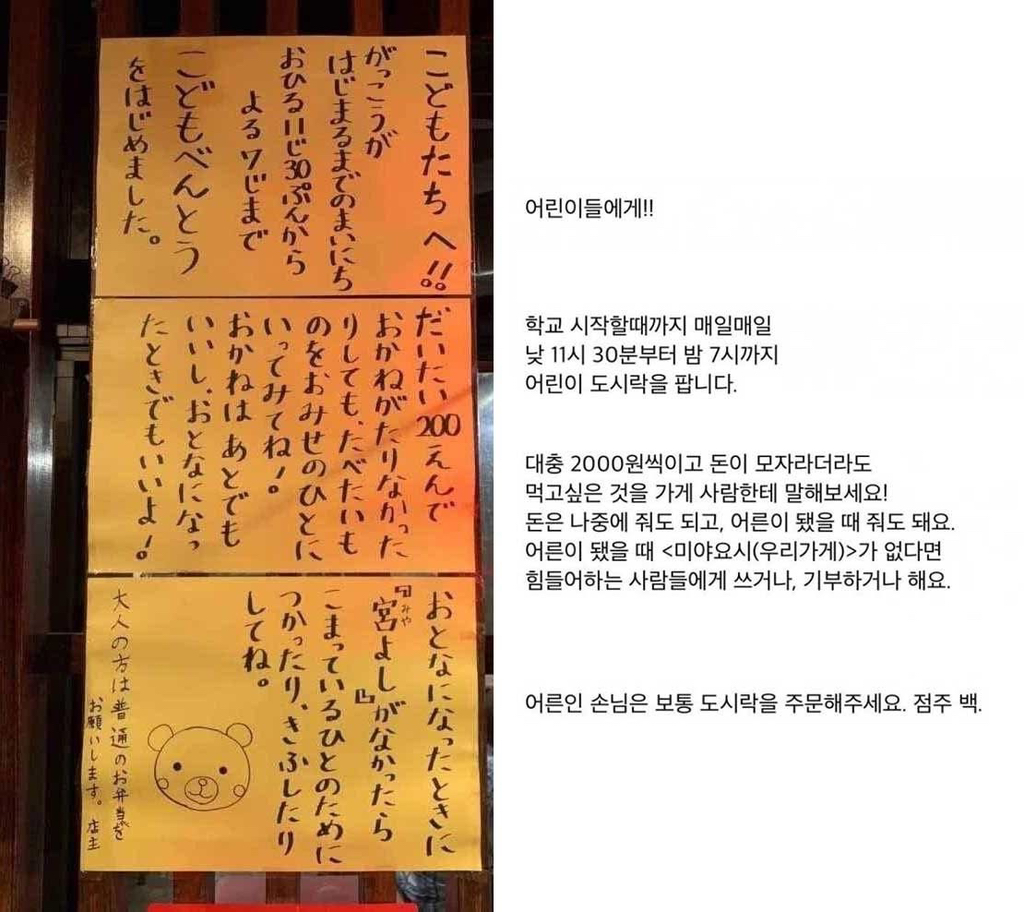 こどもたちへ!!
がっこうが
はじまるまでのまいにち
おひる11じ30ぷんから
よる7じまで
こどもべんとう
をはじめました。
だいたい200えんで
おかねがたりなかった
りしても、たべたいも
のをおみせのひとに
いってみてね!
おかねはあとでも
いいし、おとなになっ
たときでもいいよ!
おとなになったときに
『宮よし』がなかったら
みや
こまっているひとのために
つかったり、きふしたり
してね。
大人の方は普通のお弁当を
お願いします。店主
어린이들에게!!
학교 시작할때까지 매일매일
낮 11시 30분부터 밤 7시까지
어린이 도시락을 팝니다.
대충 2000원씩이고 돈이 모자라더라도
먹고싶은 것을 가게 사람한테 말해보세요!
돈은 나중에 줘도 되고, 어른이 됐을 때 줘도 돼요.
어른이 됐을 때 <미야요시(우리가게)>가 없다면
힘들어하는 사람들에게 쓰거나, 기부하거나 해요.
어른인 손님은 보통 도시락을 주문해주세요. 점주 백.